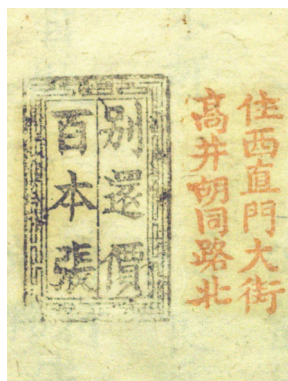 住西直門大街
高井胡同路北
別還價
百本張